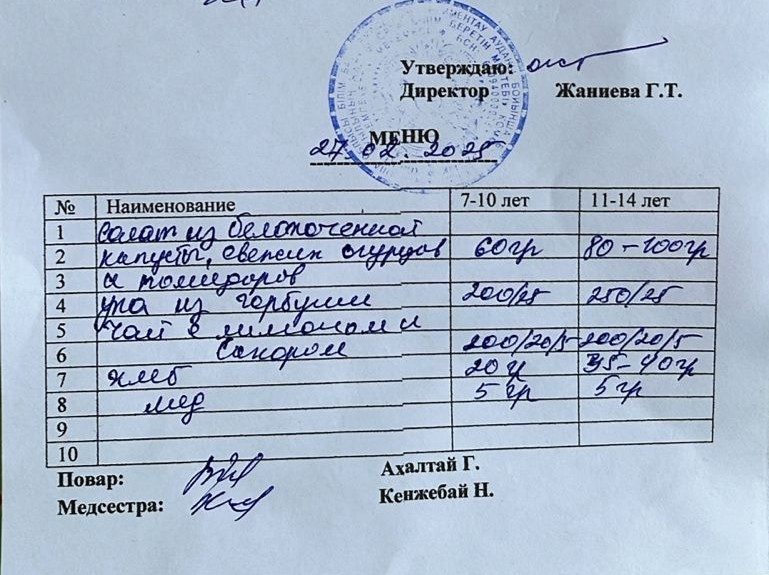 Утверждаю:
Директор Жаниева Г.Т.
МЕНЮ
27.02.2025
№ Наименование 7-10 лет 11-14 лет
1 Салат из белокоченной
2 капусты, свежих огурцов 60гр 80-100гр
3 и помидоров
4 уха из горбуши 200/25 250/25
5 Чай с лимоном и
6 Сахаром 200/20/5 200/20/5
7 Хлеб 20 гр 35-40гр
8 мед 5 гр 5 гр
9
10
Повар: Ахалтай Г.
Медсестра: Кенжебай Н.